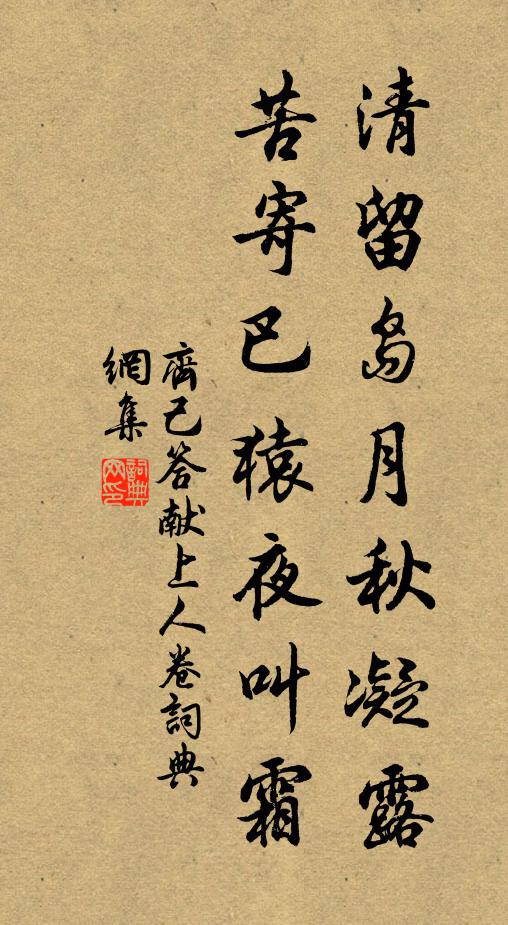 清留島月秋凝露
苦寄巴猿夜叫霜
齊己答献上人卷詞典
網集
詞典網印